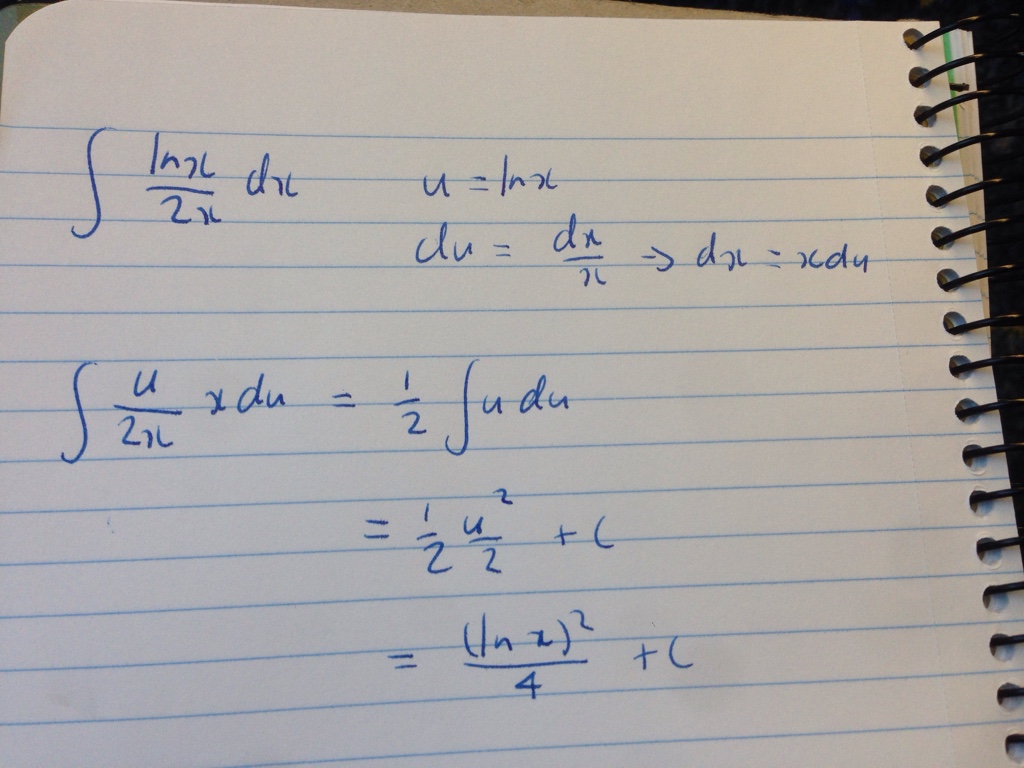 ∫ lnx/2x dx u = lnx
du = dx/x → dx = xdu
∫ u/2x x du = 1/2 ∫ u du
= 1/2 u²/2 + C
= (ln x)²/4 + C